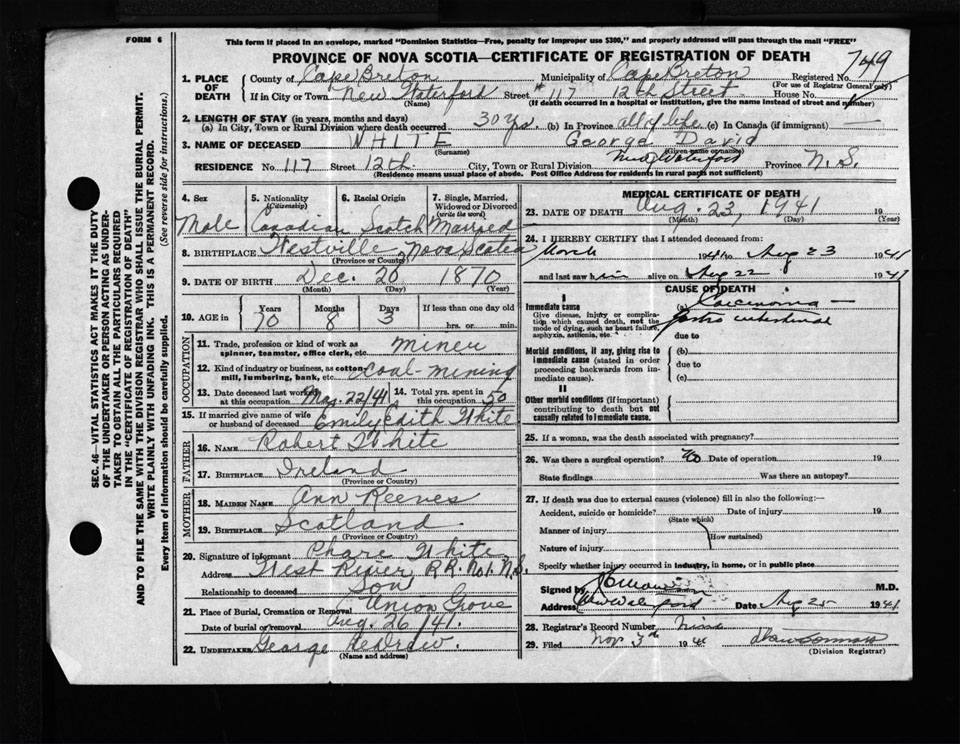 FORM 6
This form if placed in an envelope, marked "Dominion Statistics—Free, penalty for improper use $300," and properly addressed will pass through the mail "FREE"
PROVINCE OF NOVA SCOTIA—CERTIFICATE OF REGISTRATION OF DEATH
749
1. PLACE OF DEATH
County of Cape Breton Municipality of Cape Breton Registered No.
(For use of Registrar General only)
If in City or Town New Waterford Street #117 12th Street House No.
(Name) (If death occurred in a hospital or institution, give the name instead of street and number)
2. LENGTH OF STAY (in years, months and days)
(a) In City, Town or Rural Division where death occurred 30 yrs. (b) In Province all of life (c) In Canada (if immigrant) —
3. NAME OF DECEASED WHITE George David
(Surname) (Given name or names)
RESIDENCE No. 117 Street 12th City, Town or Rural Division New Waterford Province N.S.
(Residence means usual place of abode. Post Office Address for residents in rural parts not sufficient)
4. Sex Male
5. Nationality (Citizenship) Canadian
6. Racial Origin Scotch
7. Single, Married, Widowed or Divorced (write the word) Married
8. BIRTHPLACE Westville Nova Scotia
(Province or Country)
9. DATE OF BIRTH Dec. 20 1870
(Month) (Day) (Year)
10. AGE in Years 70 Months 8 Days 3 If less than one day old
hrs. or min.
OCCUPATION
11. Trade, profession or kind of work as spinner, teamster, office clerk, etc. miner
12. Kind of industry or business, as cotton-mill, lumbering, bank, etc. Coal-mining
13. Date deceased last worked at this occupation 22/41 14. Total yrs. spent in this occupation 50
15. If married give name of wife or husband of deceased Emily Edith White
FATHER
16. NAME Robert White
17. BIRTHPLACE Ireland
(Province or Country)
MOTHER
18. MAIDEN NAME Ann Reeves
19. BIRTHPLACE Scotland
(Province or Country)
20. Signature of informant Phare White
Address West River, R.R. No 1. N.S.
Relationship to deceased Son
21. Place of Burial, Cremation or Removal Union Grove
Date of burial or removal Aug. 26/41.
22. UNDERTAKER George
(Name and address)
MEDICAL CERTIFICATE OF DEATH
23. DATE OF DEATH Aug. 23, 1941 19
(Month) (Day) (Year)
24. I HEREBY CERTIFY that I attended deceased from:
March 1941 to Aug 23 1941
and last saw him alive on Aug 22 1941
CAUSE OF DEATH
I
Immediate cause
Give disease, injury or complication which caused death, not the mode of dying, such as heart failure, asphyxia, asthenia, etc.
(a) Carcinoma —
gastro intestinal
due to
Morbid conditions, if any, giving rise to immediate cause (stated in order proceeding backwards from immediate cause).
(b)
due to
(c)
II
Other morbid conditions (if important) contributing to death but not causally related to immediate cause.
25. If a woman, was the death associated with pregnancy?
26. Was there a surgical operation? No Date of operation 19
State findings Was there an autopsy?
27. If death was due to external causes (violence) fill in also the following:—
Accident, suicide or homicide? Date of injury 19
(State which)
Manner of injury
(How sustained)
Nature of injury
Specify whether injury occurred in industry, in home, or in public place
Signed by M.D.
Address New Waterford Date Aug 25 1941
28. Registrar's Record Number
29. Filed Nov. 3rd 1941
(Division Registrar)
SEC. 46—VITAL STATISTICS ACT MAKES IT THE DUTY
OF THE UNDERTAKER OR PERSON ACTING AS UNDER-
TAKER TO OBTAIN ALL THE PARTICULARS REQUIRED
IN THE "CERTIFICATE OF REGISTRATION OF DEATH"
AND TO FILE THE SAME WITH THE DIVISION REGISTRAR WHO SHALL ISSUE THE BURIAL PERMIT.
WRITE PLAINLY WITH UNFADING INK. THIS IS A PERMANENT RECORD.
Every item of information should be carefully supplied. (See reverse side for instructions.)